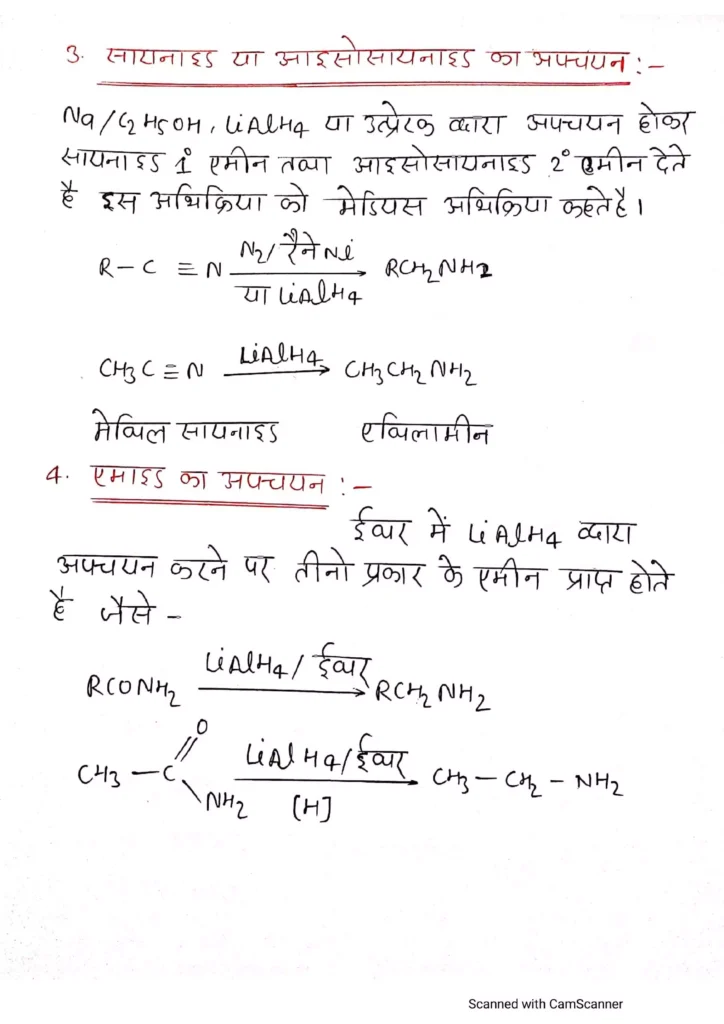 3. सायनाइड या आइसोसायनाइड का अपचयन :-
Na/C2H5OH, LiAlH4 या उत्प्रेरक द्वारा अपचयन होकर
सायनाइड 1° एमीन तथा आइसोसायनाइड 2° एमीन देते
है इस अभिक्रिया को मेंडियस अभिक्रिया कहते है।
N2/ रैने Ni
R-C ≡N → RCH2NH2
या LiAlH4
LiAlH4
CH3C≡N → CH3CH2NH2
मेथिल सायनाइड एथिलामीन
4. एमाइड का अपचयन :-
ईथर में LiAlH4 द्वारा
अपचयन करने पर तीनो प्रकार के एमीन प्राप्त होते
है जैसे -
LiAlH4/ ईथर
RCONH2 → RCH2NH2
O
LiAlH4/ईथर
CH3-C → CH3-CH2-NH2
NH2 [H]
Scanned with CamScanner